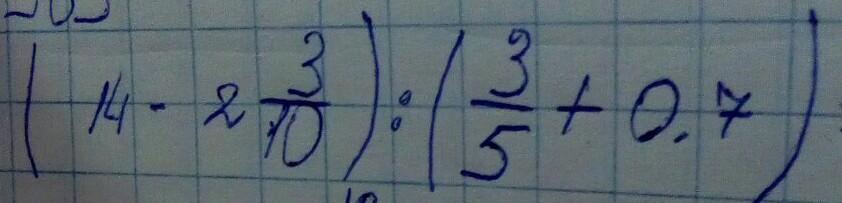 ( 14 - 2 3/10 ) : ( 3/5 + 0.7 )